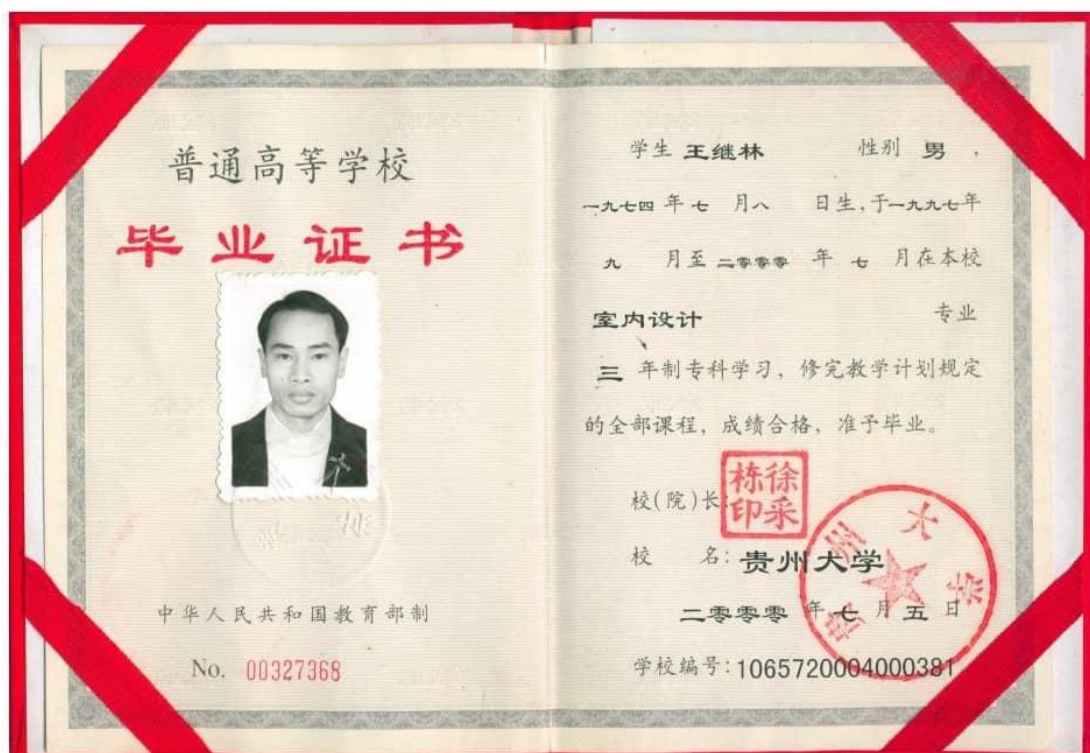 普通高等学校
毕业证书
中华人民共和国教育部制
No. 00327368
学生 王继林 性别 男,
一九七四年七月八日生,于一九九七年
九月至二零零零年七月在本校
室内设计 专业
三年制专科学习，修完教学计划规定
的全部课程，成绩合格，准予毕业。
校(院)长:
徐采栋印
校名:贵州大学
贵州大学
二零零零年七月五日
学校编号:1065720004000381